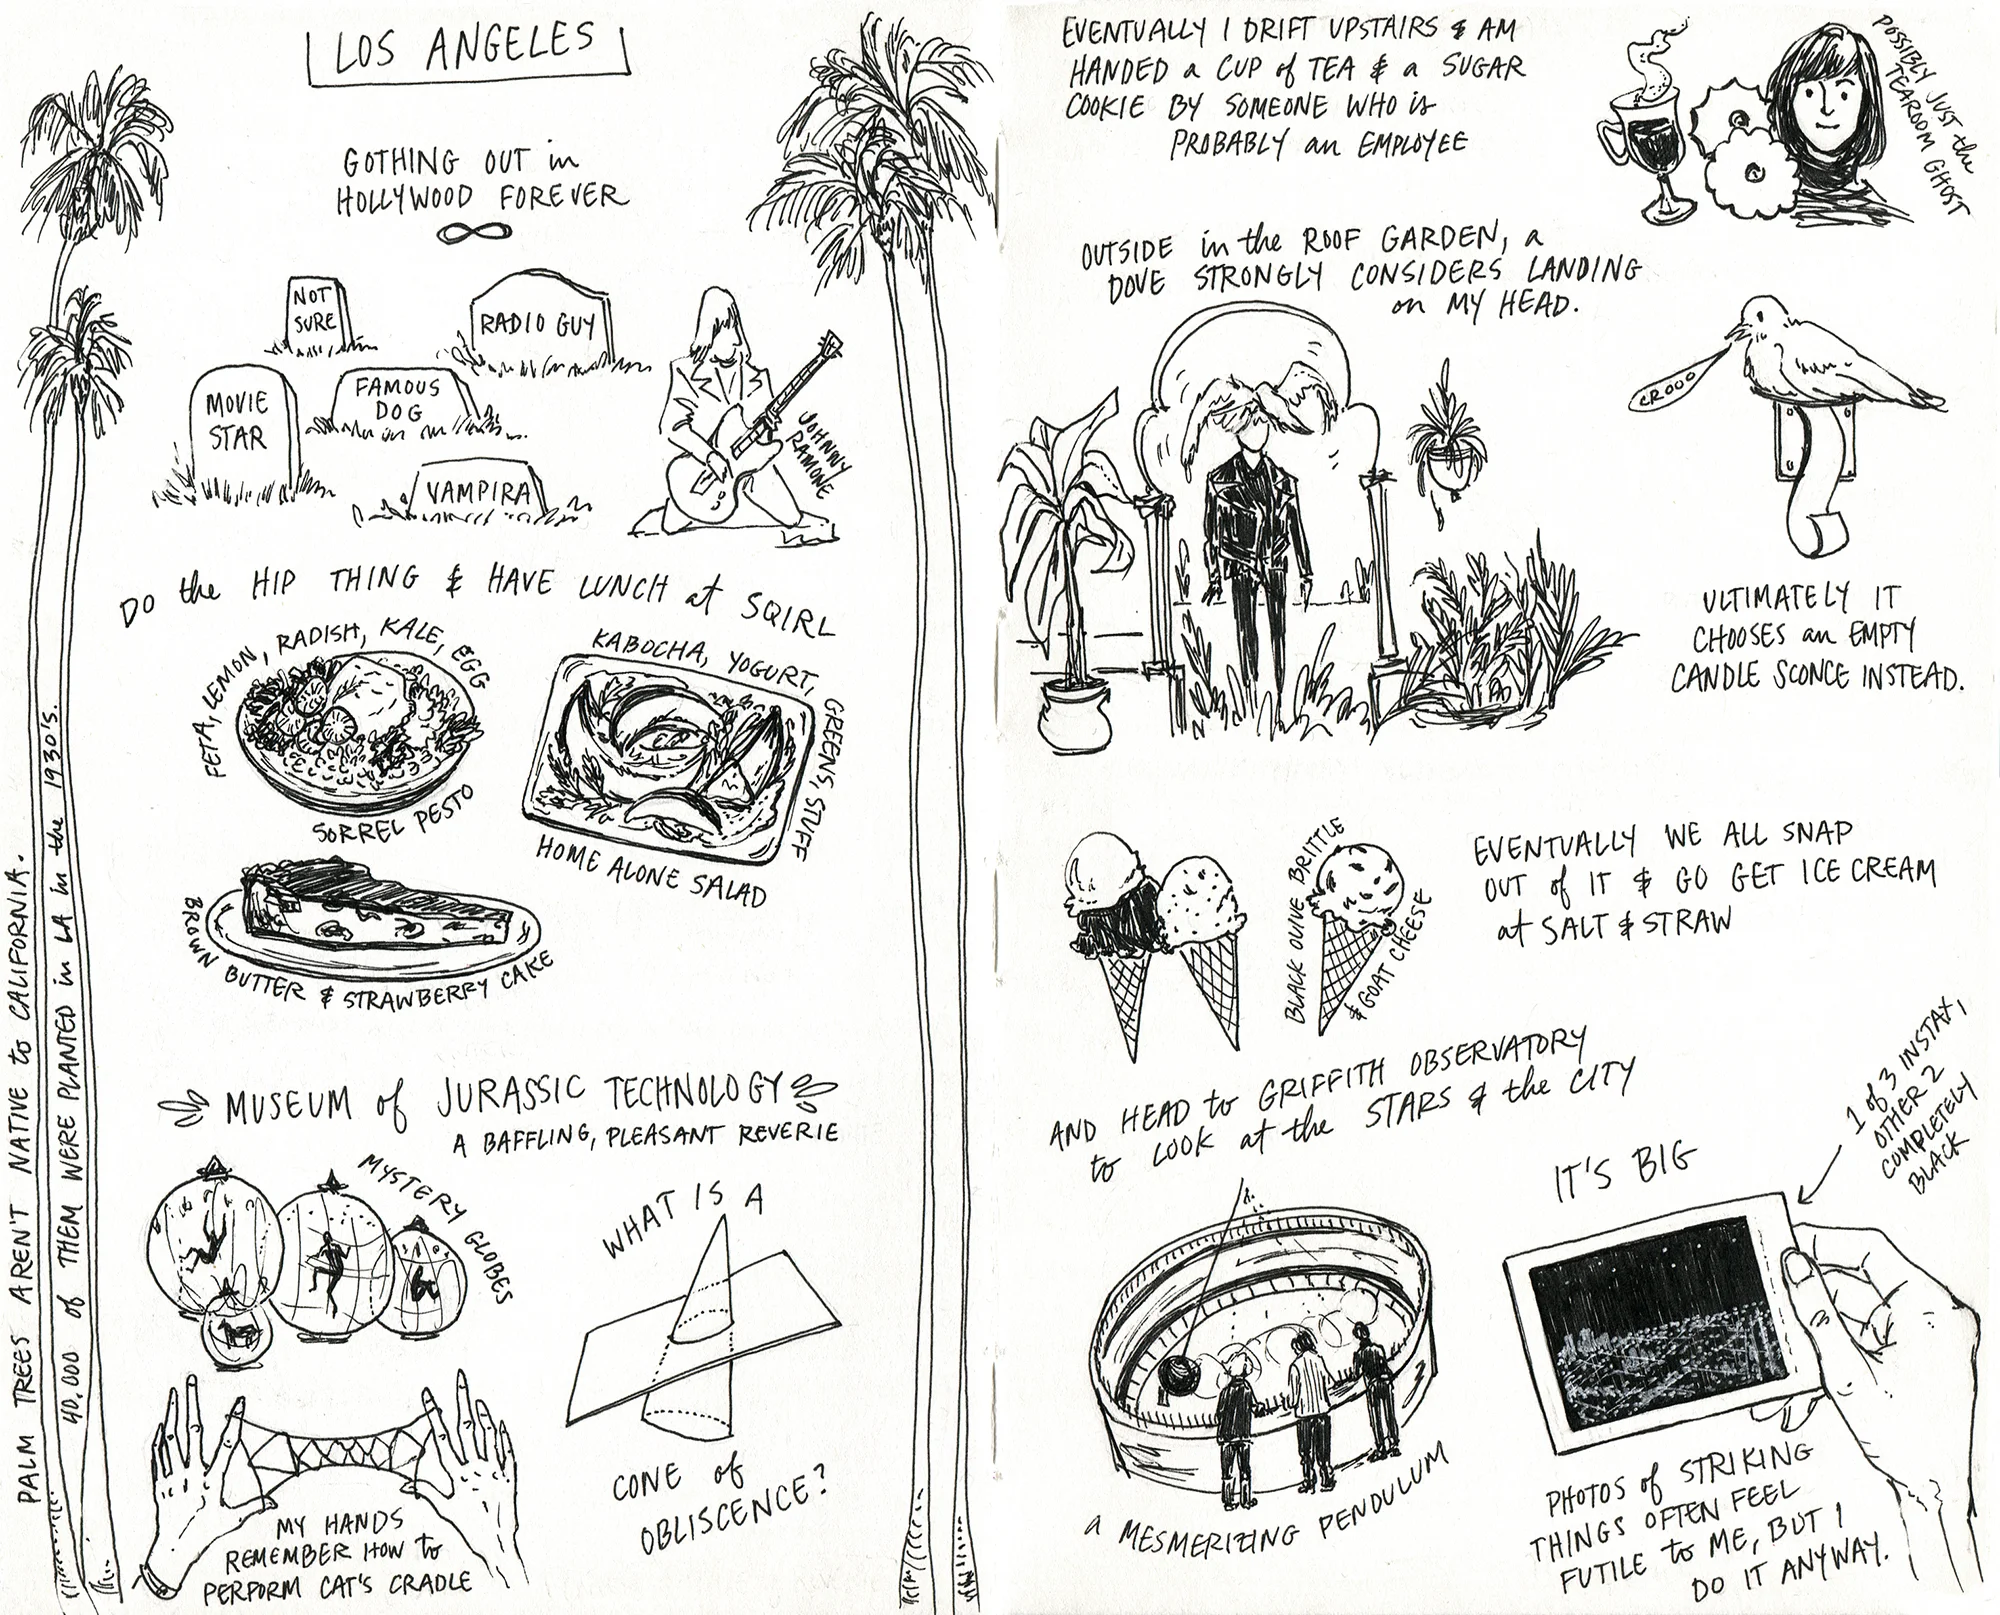 LOS ANGELES
GOTHING OUT in
HOLLYWOOD FOREVER
NOT
SURE
RADIO GUY
MOVIE
STAR
FAMOUS
DOG
VAMPIRA
JOHNNY
RAMONE
DO the HIP THING & HAVE LUNCH at SQIRL
FETA, LEMON, RADISH, KALE, EGG
SORREL PESTO
KABOCHA, YOGURT, GREENS, STUFF
HOME ALONE SALAD
BROWN BUTTER & STRAWBERRY CAKE
MUSEUM of JURASSIC TECHNOLOGY
A BAFFLING, PLEASANT REVERIE
MYSTERY GLOBES
WHAT IS A
CONE of
OBLISCENCE?
MY HANDS
REMEMBER HOW to
PERFORM CAT'S CRADLE
PALM TREES AREN'T NATIVE to CALIFORNIA.
40,000 of THEM WERE PLANTED in LA in the 1930'S.
EVENTUALLY I DRIFT UPSTAIRS & AM
HANDED a CUP of TEA & a SUGAR
COOKIE BY SOMEONE WHO is
PROBABLY an EMPLOYEE
POSSIBLY JUST the
TEAROOM GHOST
OUTSIDE in the ROOF GARDEN, a
DOVE STRONGLY CONSIDERS LANDING
on MY HEAD.
CROOO
ULTIMATELY IT
CHOOSES an EMPTY
CANDLE SCONCE INSTEAD.
BLACK OLIVE BRITTLE
& GOAT CHEESE
EVENTUALLY WE ALL SNAP
OUT of IT & GO GET ICE CREAM
at SALT & STRAW
AND HEAD to GRIFFITH OBSERVATORY
to LOOK at the STARS & the CITY
a MESMERIZING PENDULUM
IT'S BIG
1 of 3 INSTAX,
OTHER 2
COMPLETELY
BLACK
PHOTOS of STRIKING
THINGS OFTEN FEEL
FUTILE to ME, BUT I
DO IT ANYWAY.